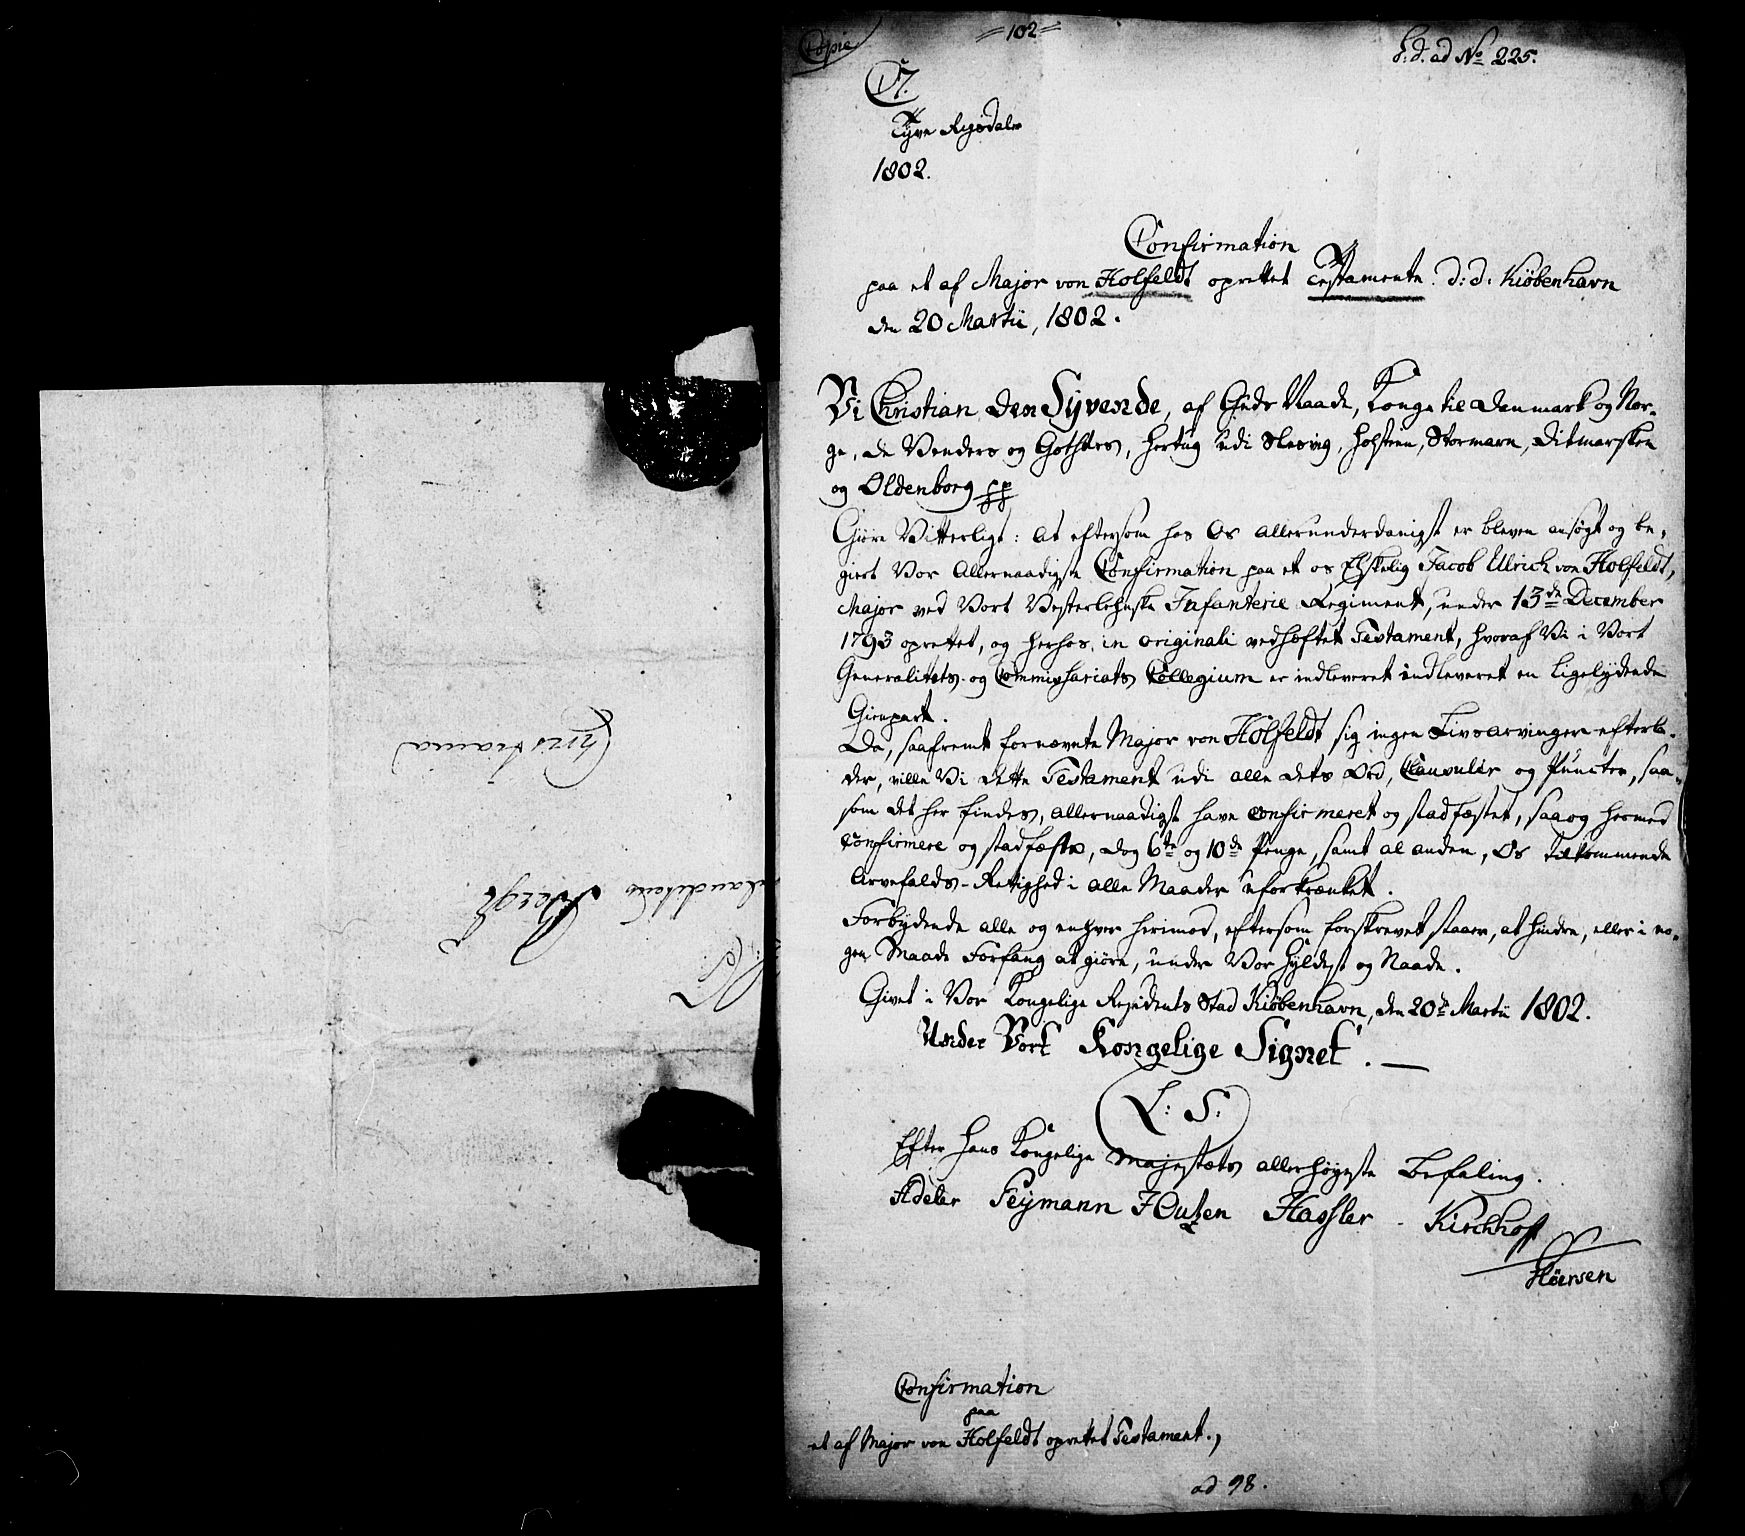 Copie
=102=
L: d. ad No 225.
C7.
Tyve Rigsdaler
1802.
Confirmation
paa et af Major von Holfeldt oprettet Testamente. d: d. Kiöbenhavn
den 20 Martii, 1802.
Vi Christian den Syvende, af Guds Naade, Konge til Danmark og Nor-
ge, de Venders og Gothers, Hertug udi Slesvig, Holsteen, Stormarn, Ditmarsken
og Oldenborg pp
Giøre Vitterligt: At eftersom hos Os allerunderdanigst er bleven ansøgt og be-
giert Vor Allernaadigste Confirmation paa et os Elskelig Jacob Ulrich von Holfeldt,
Major ved Vort Vesterlehnske Infanterie Regiment, under 13de December
1793 oprettet, og herhos in originali vedhæftet Testament, hvoraf Vi i Vort
Generalitets- og Commissariats Collegium er indleveret indleveret en ligelydende
Gienpart.
Da, saafremt fornævnte Major von Holfeldt sig ingen Livsarvinger efterla-
der, ville Vi dette Testament udi alle dets Ord, Clausuler og Puncter, saa-
som det her findes, allernaadigst have confirmeret og stadfæstet, saa og hermed
confirmere og stadfæste, dog 6te og 10de Penge, samt al anden, Os tilkommende
Arvefalds-Rettighed i alle Maader uforkrænket.
Forbydende alle og enhver herimod, eftersom forskrevet staaer, at hindre, eller i no-
gen Maade Forfang at giøre, under Vor Hyldest og Naade.
Givet i Vor Kongelige Residents Stad Kiöbenhavn, den 20de Martii 1802.
Under Vort Kongelige Signet. —
L: S:
Efter Hans Kongelige Majestæts allerhøyeste Befaling.
Adeler Feymann Houtzen Hassler - Kirchhoff
Confirmation
paa
et af Major von Holfeldt oprettet Testament.,
ad 98.
Bergh
Christiania